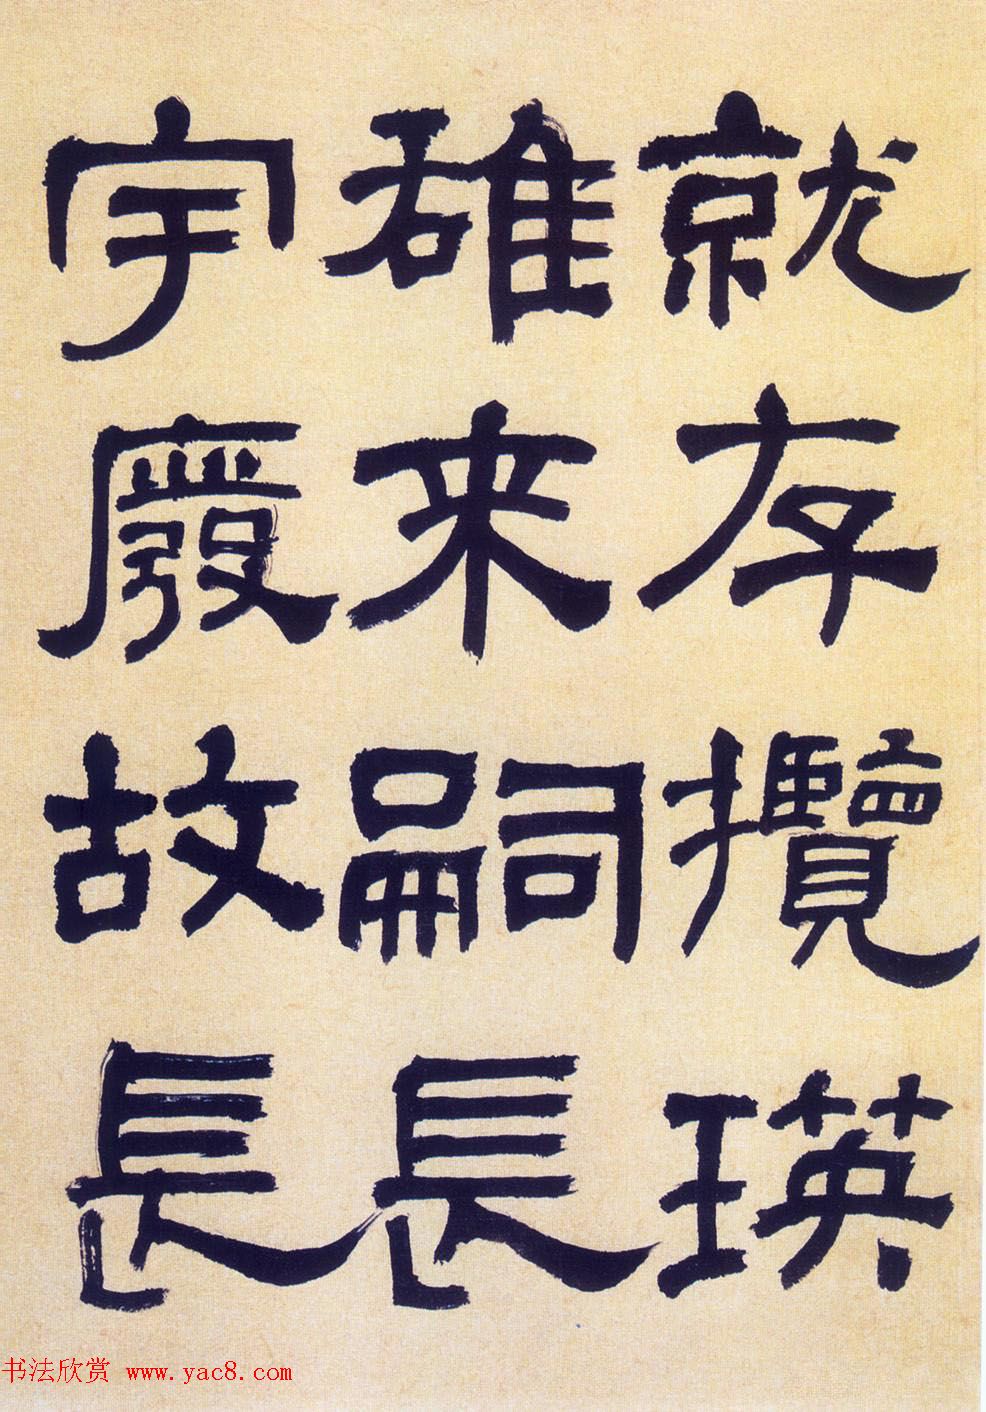 就存攬瑛
雄来嗣長
宇廢故長
书法欣赏 www.yac8.com